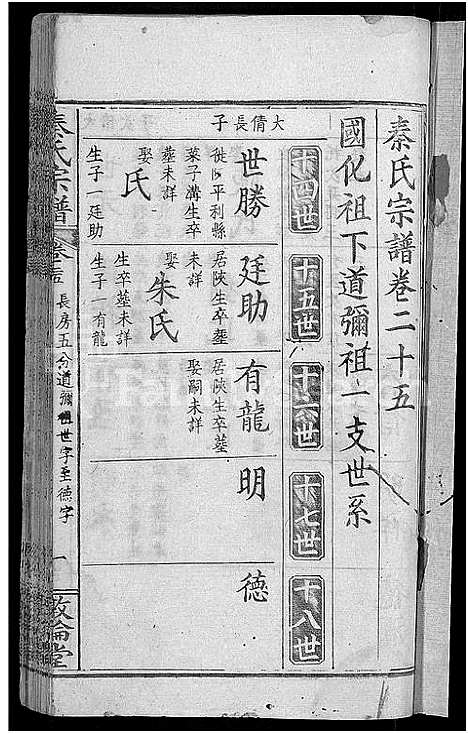 秦氏宗譜卷二十五
國化祖下道彌祖一支世系
十四世
十五世
十六世
十七世
十八世
大倩長子
世勝
徙陝平利縣
菜子溝生卒
塟未詳
娶
氏
生子一廷助
廷助
居陝生卒塟
未詳
娶
朱氏
生卒塟未詳
生子一有龍
有龍
居陝生卒塟
娶嗣未詳
明
德
秦氏宗譜
長房五分道彌祖世字至德字
一
敦倫堂